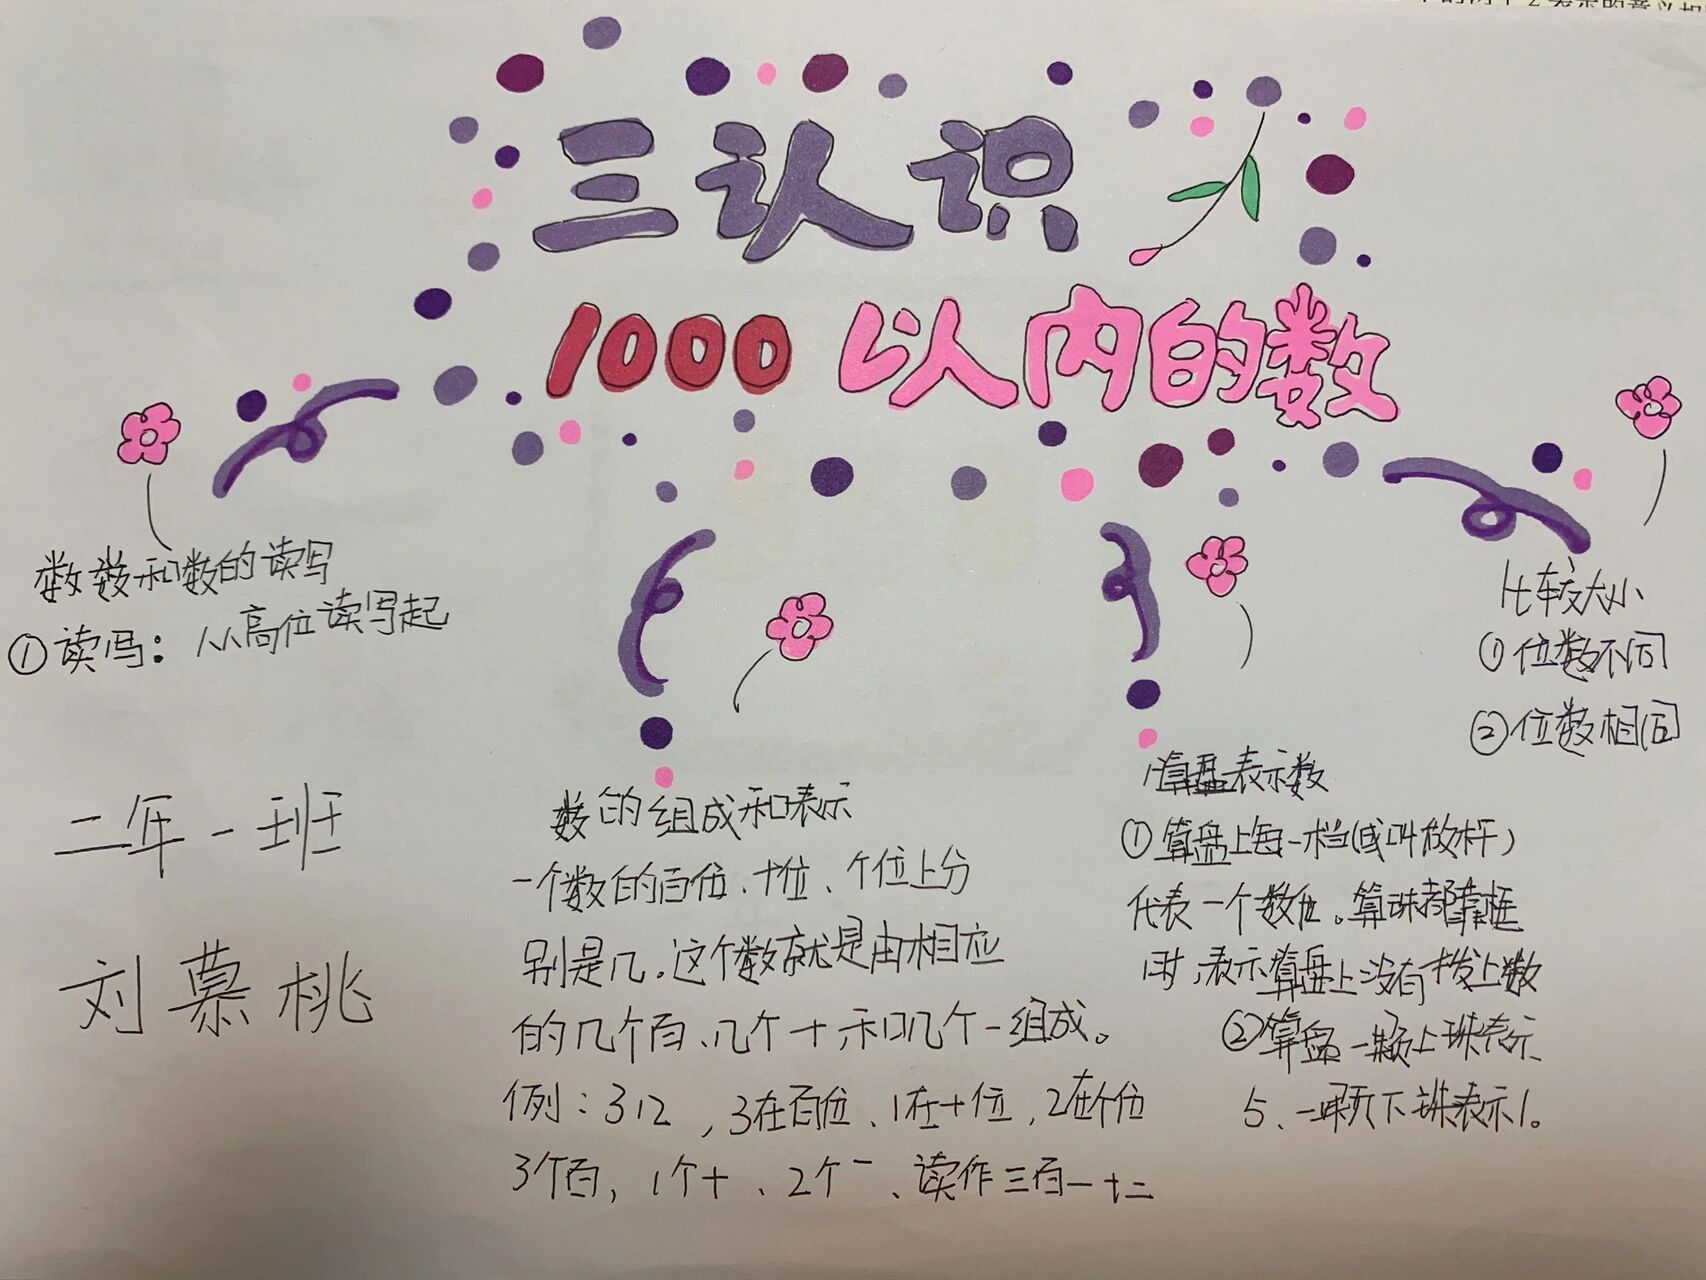 三认识
1000以内的数
数数和数的读写
①读写：从高位读写起
二年一班
刘慕桃
数的组成和表示
一个数的百位、十位、个位上分
别是几。这个数就是由相应
的几个百、几个十和几个一组成。
例：312，3在百位、1在十位，2在个位
3个百，1个十、2个一、读作三百一十二
算盘表示数
①算盘上每一档(或叫做杆)
代表一个数位。算珠都靠框
时，表示算盘上没有拨上数
②算盘一颗上珠表示
5、一颗下珠表示1。
比较大小
①位数不同
②位数相同